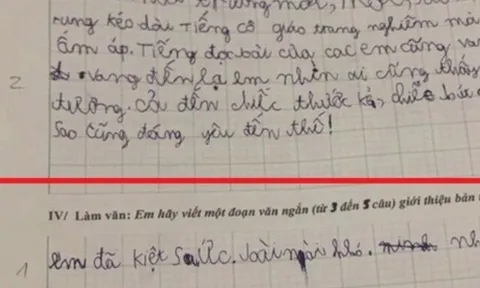 rung kéo dài Tiếng cô giáo trang nghiêm mà
ấm áp. Tiếng đọc bài của các em cũng va
vang đến lạ em nhìn ai cũng thấy
2
thương. Cả đến chiếc thước kẻ, chiếc bút
Sao cũng đáng yêu đến thế!
IV/ Làm văn: Em hãy viết một đoạn văn ngắn (từ 3 đến 5 câu) giới thiệu bản
1 em đã kiệt sức. bài ngài khó.